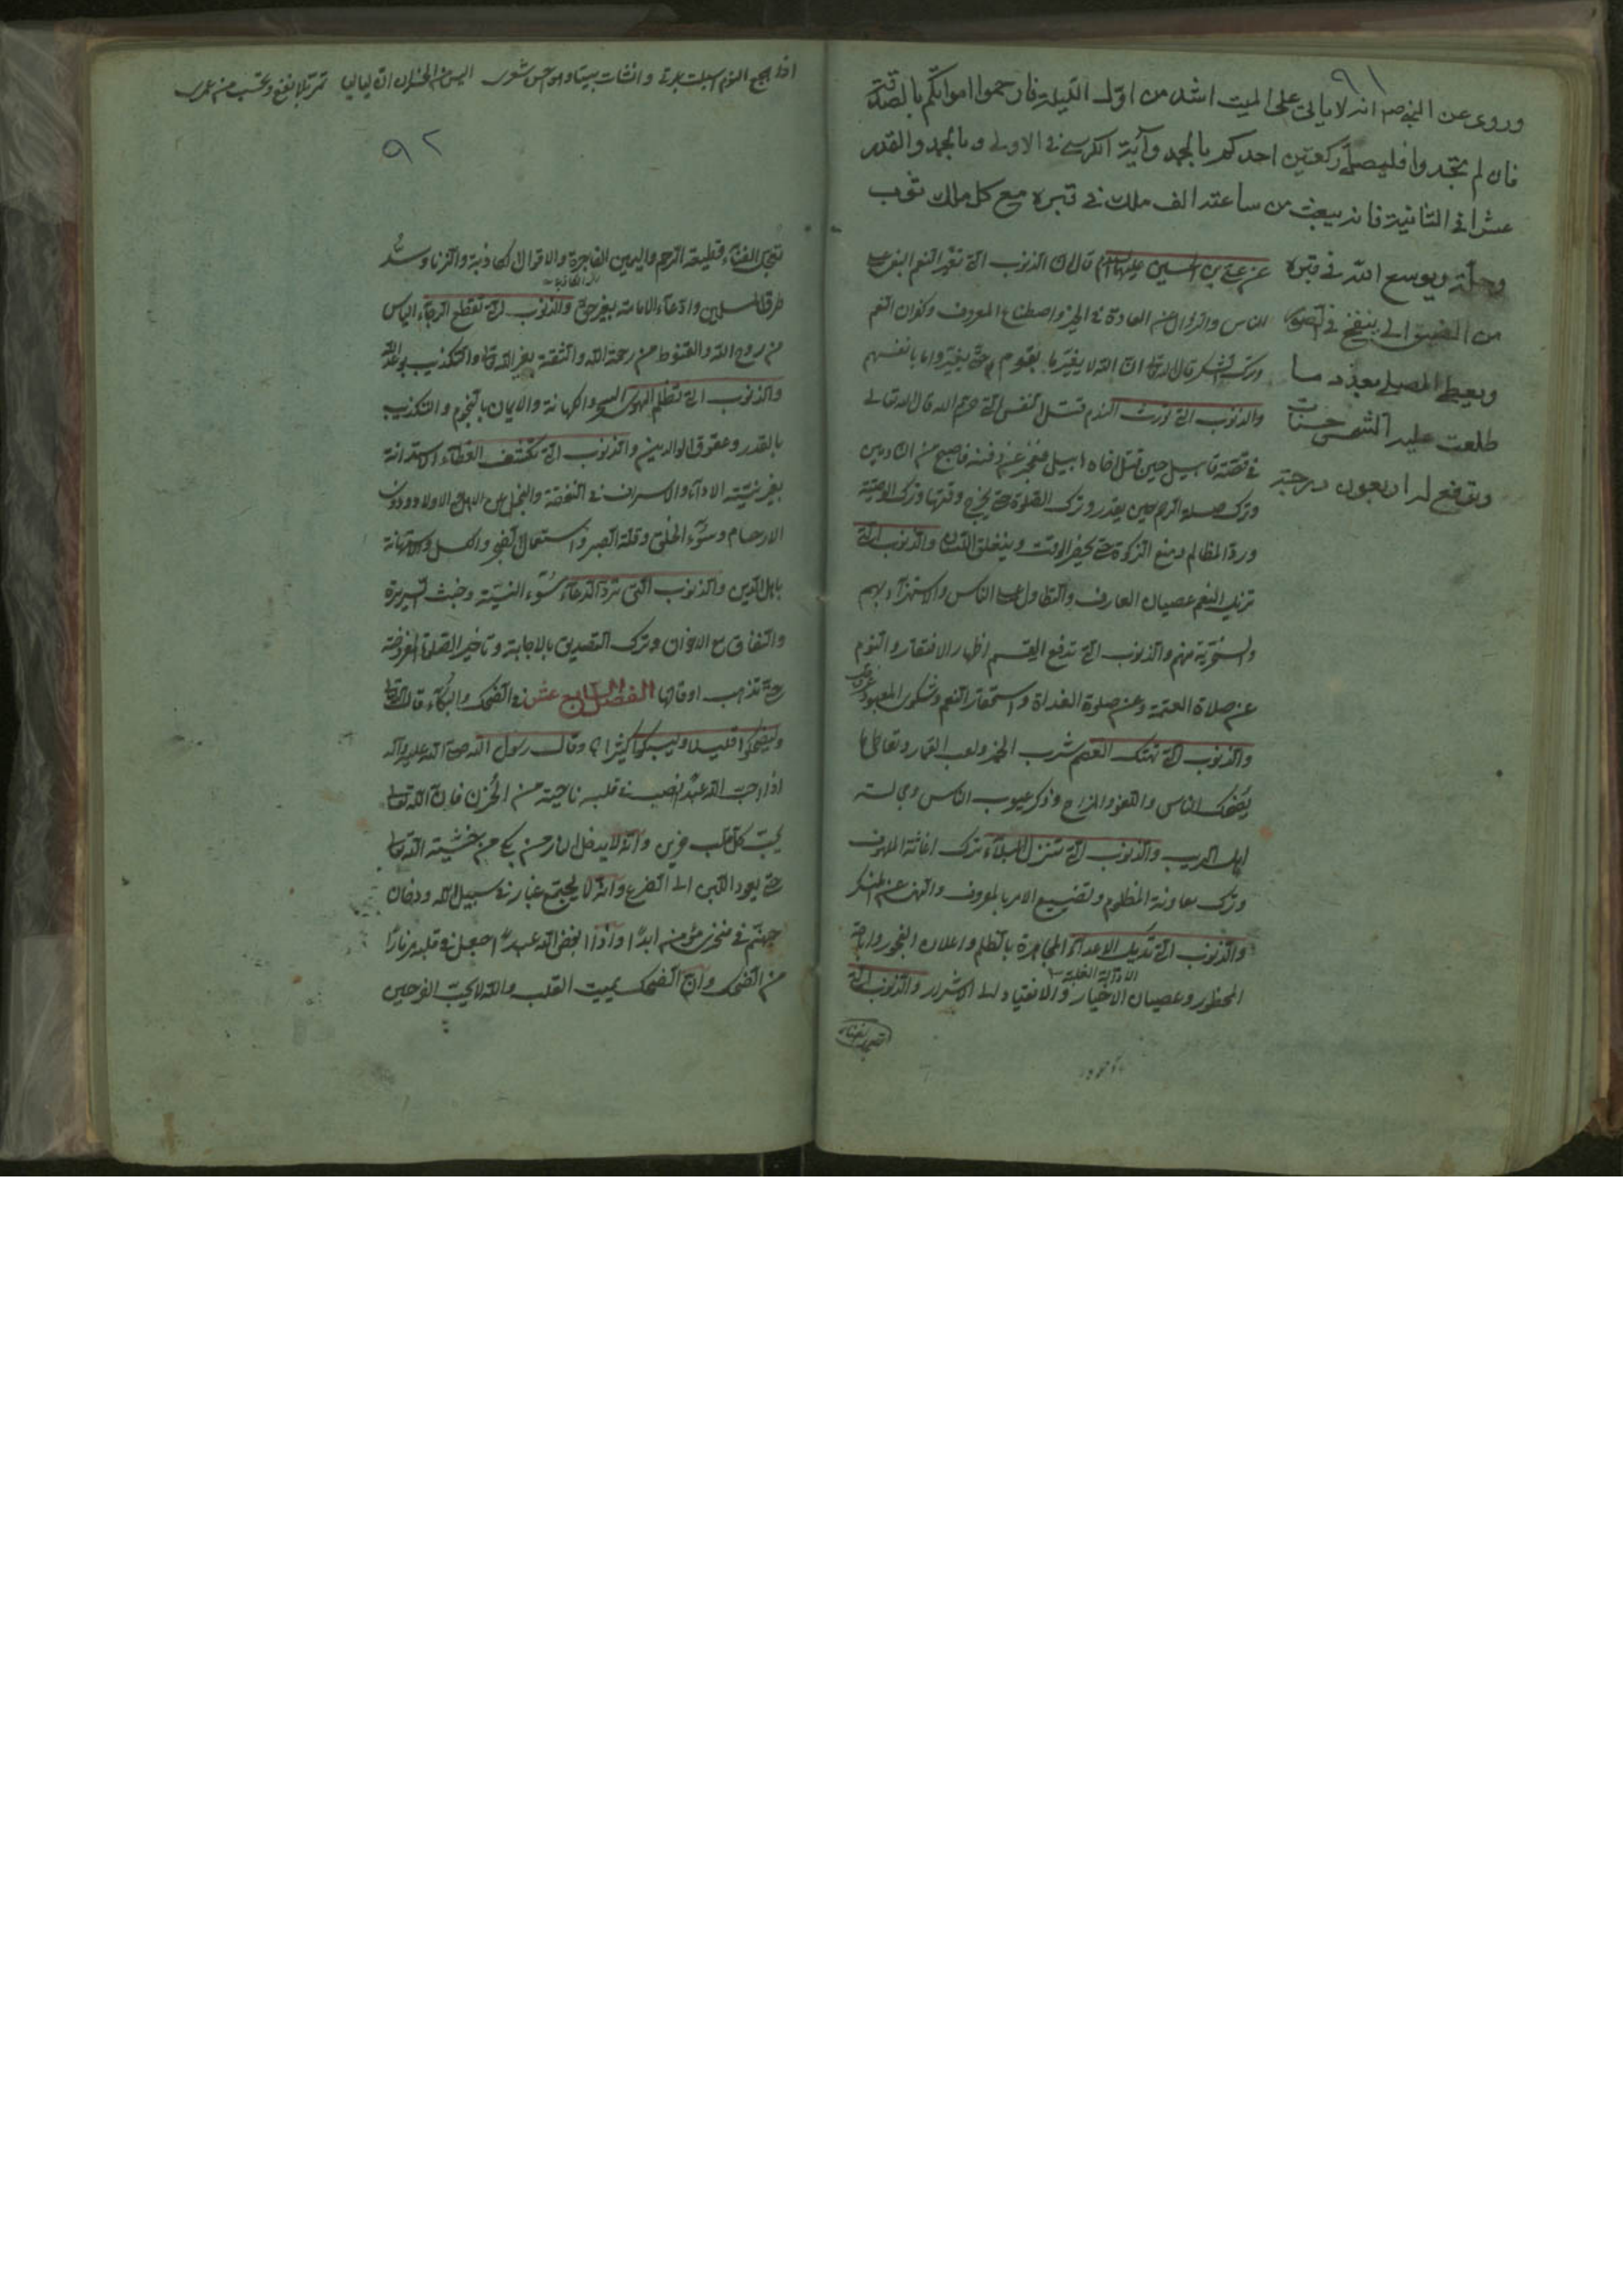 ٩١
وروى عن النبي ص انه لا ياتي على الميت اشد من اول الليلة فارحموا امواتكم بالصدقة
فان لم تجدوا فليصل ركعتين احدكم بالحمد وآية الكرسي في الاولى وبالحمد والقدر
عشرا في الثانية فانه يبعث من ساعته الف ملك في قبره مع كل ملك ثوب
وحلة ويوسع الله في قبره
من الضيق الى ينفخ في الصور
ويعطى المصلي بعدد ما
طلعت عليه الشمس حسنات
ويرفع له اربعون درجة
عن علي بن الحسين عليهما السلام قال ان الذنوب التي تغير النعم البغي على
الناس والزوال عن العادة في الخير واصطناع المعروف وكفران النعم
وترك الشكر قال الله تعالى ان الله لا يغير ما بقوم حتى يغيروا ما بانفسهم
والذنوب التي تورث الندم قتل النفس التي حرم الله قال الله تعالى
في قصة قابيل حين قتل اخاه هابيل فعجز عن دفنه فاصبح من النادمين
وترك صلة الرحم حين يقدر وترك الصلوة حتى يخرج وقتها وترك الوصية
ورد المظالم ومنع الزكوة حتى يحضر الموت وينغلق اللسان والذنوب التي
تزيل النعم عصيان العارف والتطاول على الناس والاستهزاء بهم
والسخرية منهم والذنوب التي تدفع القسم اظهار الافتقار والنوم
عن صلاة العتمة وعن صلوة الغداة واستحقار النعم وشكوى المعبود عز وجل
والذنوب التي تهتك العصم شرب الخمر ولعب القمار وتعاطي ما
يضحك الناس واللغو والمزاح وذكر عيوب الناس ومجالسة
اهل الريب والذنوب التي تنزل البلاء ترك اغاثة الملهوف
وترك معاونة المظلوم وتضييع الامر بالمعروف والنهي عن المنكر
والذنوب التي تديل الاعداء المجاهرة بالظلم واعلان الفجور واباحة
الادالة الغلبة
المحظور وعصيان الاخيار والانقياد الى الاشرار والذنوب التي
تعجل الفناء
اذا هجع النوم اسبلت عبرتي وانشات بيتا وهو من شعري اليس من الخسران ان لياليا تمر بلا نفع وتحسب من عمري
٩٢
تعجل الفناء قطيعة الرحم واليمين الفاجرة والاقوال الكاذبة والزنا وسد
طرق المسلمين وادعاء الامامة بغير حق والذنوب التي تقطع الرجاء الياس
من روح الله والقنوط من رحمة الله والثقة بغير الله تعالى والتكذيب بوعد الله
والذنوب التي تظلم الهواء السحر والكهانة والايمان بالنجوم والتكذيب
بالقدر وعقوق الوالدين والذنوب التي تكشف الغطاء الاستدانة
بغير نية الاداء والاسراف في النفقة والبخل على الاهل والاولاد وذوي
الارحام وسوء الخلق وقلة الصبر واستعمال الضجر والكسل والاستهانة
باهل الدين والذنوب التي ترد الدعاء سوء النية وخبث السريرة
والنفاق مع الاخوان وترك التصديق بالاجابة وتاخير الصلوة المفروضة
حتى تذهب اوقاتها الفصل الرابع عشر في الضحك والبكاء قال الله تعالى
وليضحكوا قليلا وليبكوا كثيرا وقال رسول الله صلى الله عليه وآله
اذا احب الله عبدا نصب في قلبه نائحة من الحزن فان الله تعالى
يحب كل قلب حزين وانه لا يدخل النار من بكى من خشية الله تعالى
حتى يعود اللبن الى الضرع وانه لا يجتمع غبار في سبيل الله ودخان
جهنم في منخري مؤمن ابدا واذا ابغض الله عبدا جعل في قلبه مزمارا
من الضحك وان الضحك يميت القلب والله لا يحب الفرحين